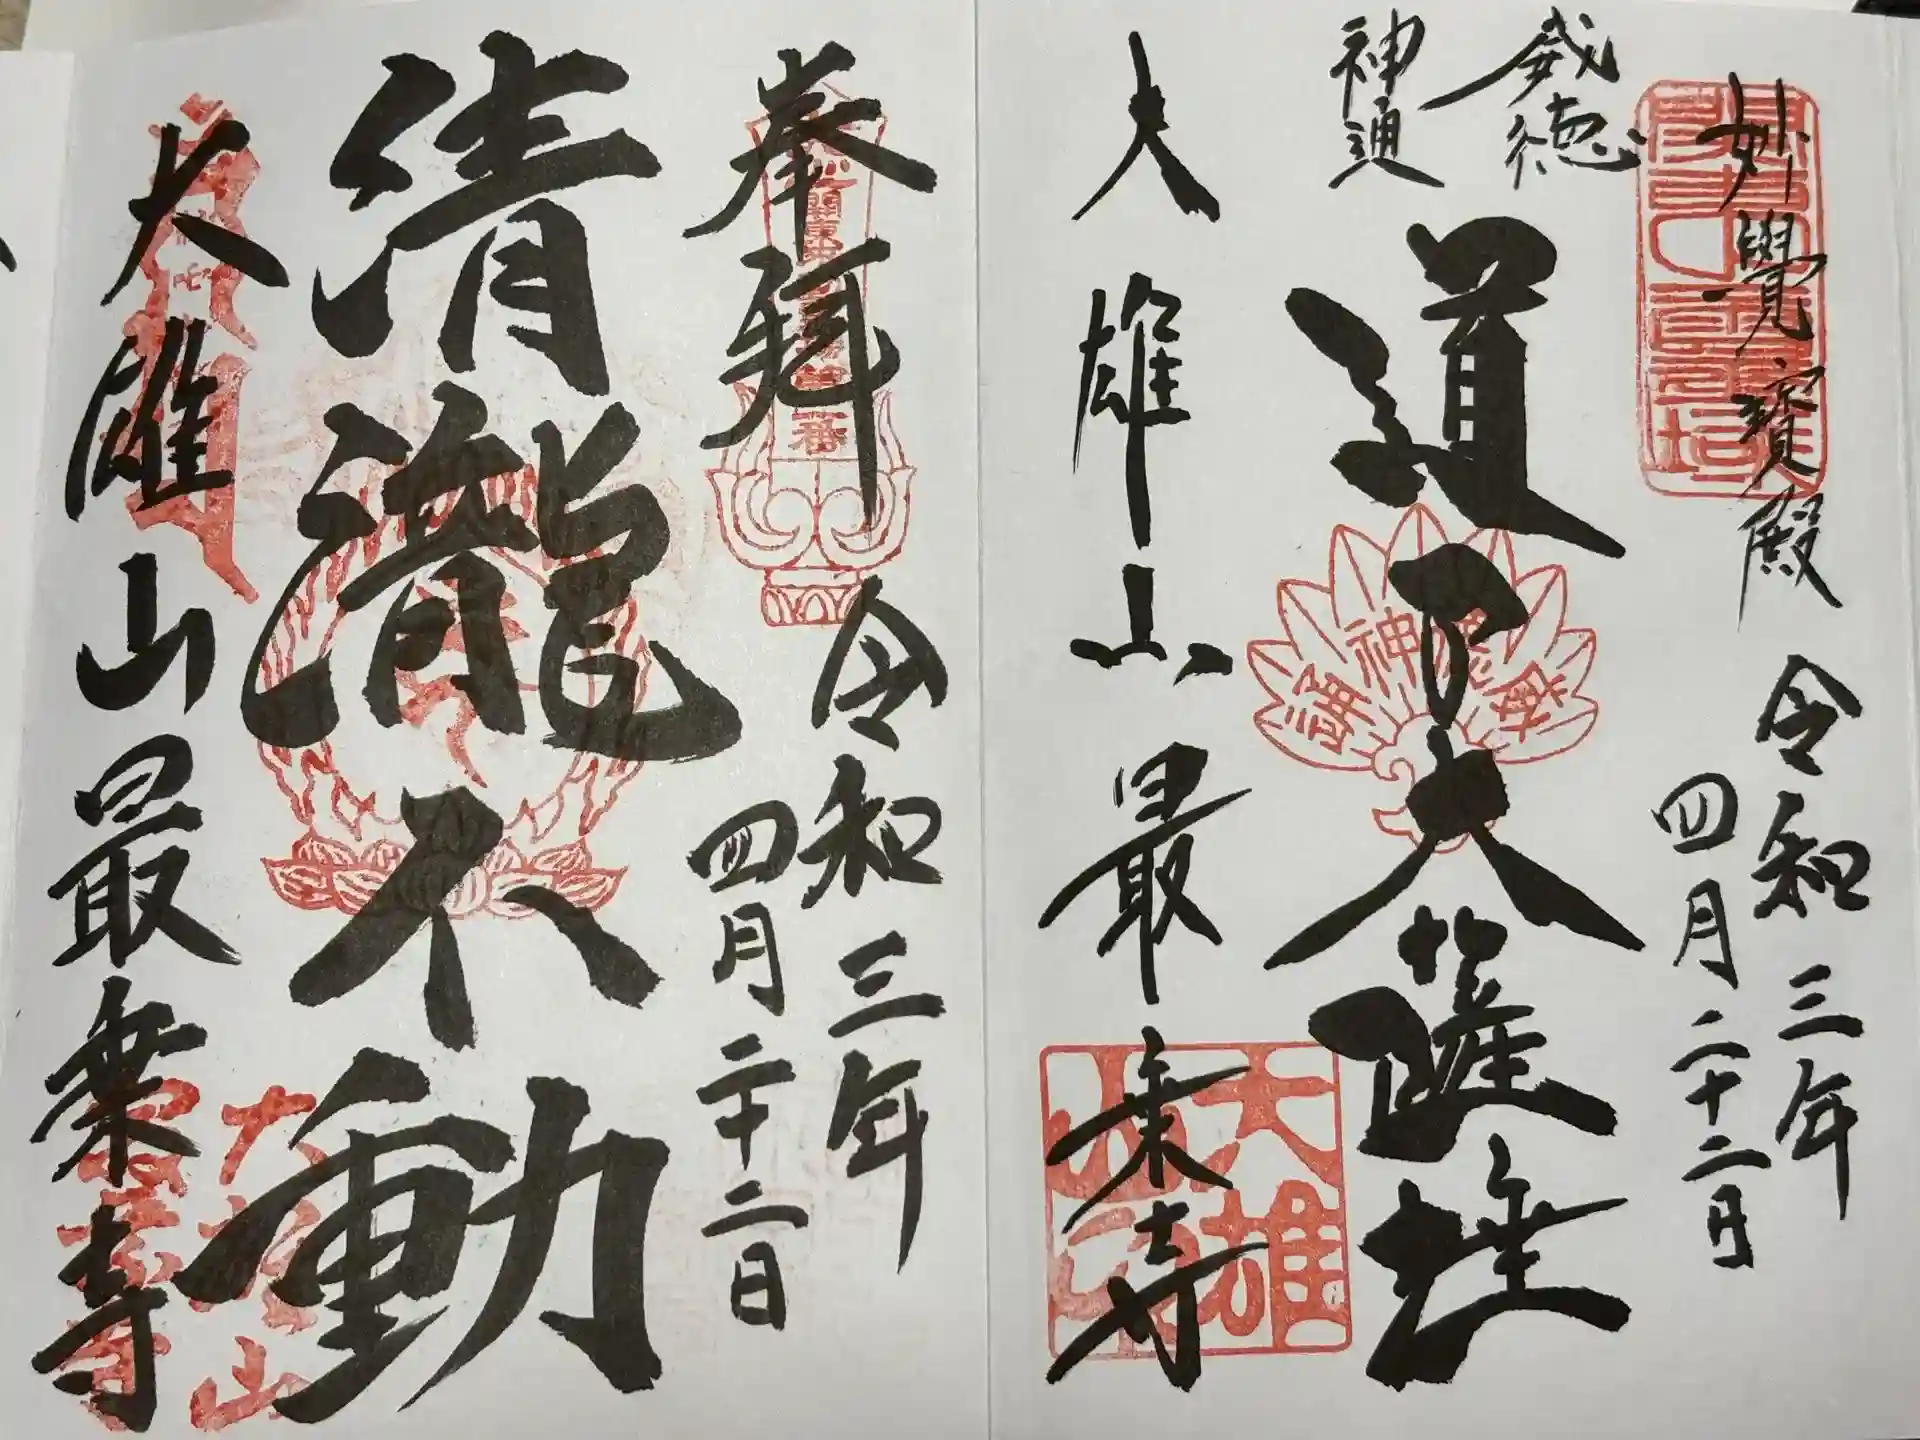 妙覺寶殿
令和三年
四月二十二日
威徳
神通
道了大薩埵
大雄山最乗寺
大雄
奉拜
令和三年
四月二十二日
清瀧不動
大雄山最乗寺